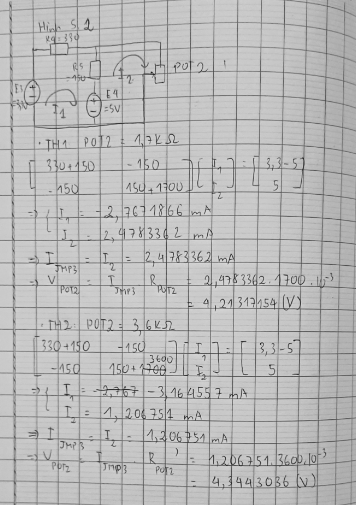 Hình 5.2
R4 = 330
R5 = 150
I2
POT2
E1
I1
E4 = 5V
• TH1 POT2 = 1,7KΩ
[330+150 -150] [I1] = [3,3-5]
[-150 150+1700] [I2] [5]
=> { I1 = -2,7671866 mA
I2 = 2,4783362 mA
=> I JMP3 = I2 = 2,4783362 mA
=> V POT2 = I JMP3 R POT2 = 2,4783362.1700.10^-3
= 4,21317154 (V)
• TH2: POT2 = 3,6KΩ
[330+150 -150] [I1] = [3,3-5]
3600
[-150 150+1700] [I2] [5]
=> { I1 = -2,767 -3,164557 mA
I2 = 1,206751 mA
=> I JMP3 = I2 = 1,206751 mA
=> V POT2 = I JMP3 R POT2 = 1,206751.3600.10^-3
= 4,3443036 (V)